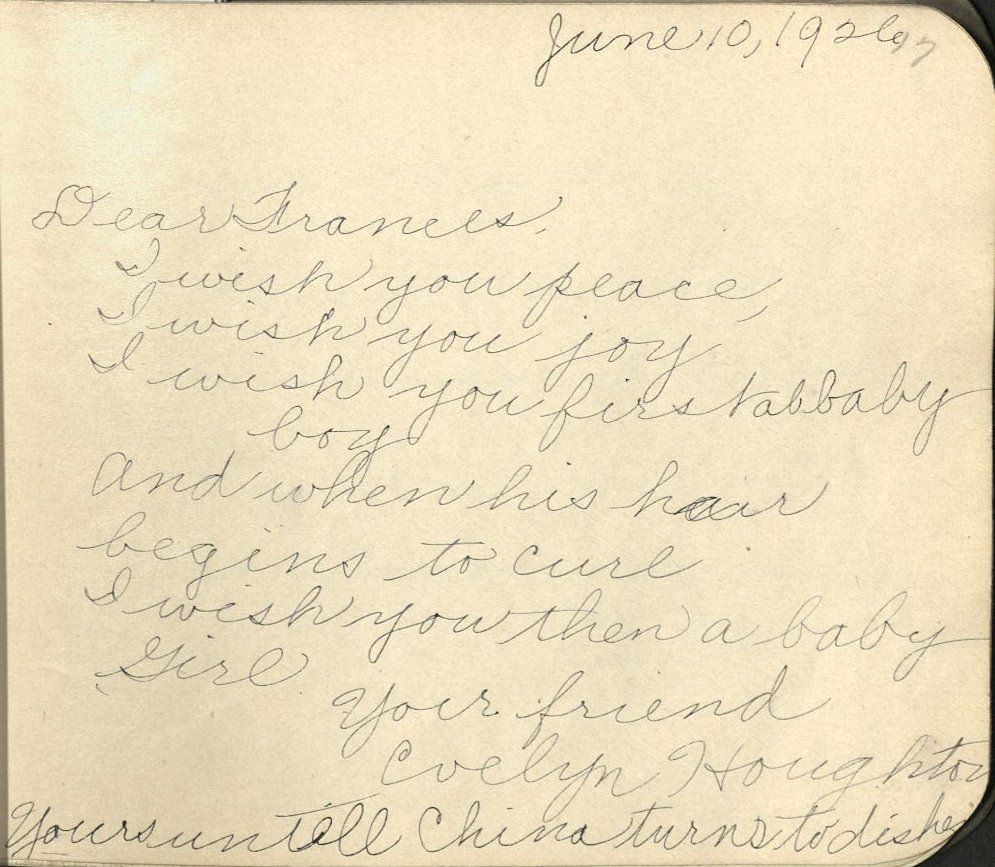 June 10, 1926
Dear Frances,
I wish you peace,
I wish you joy
I wish you first a baby
boy
And when his hair
begins to curl
I wish you then a baby
Girl
Your friend
Evelyn Houghton
Yours untill China turns to dishes